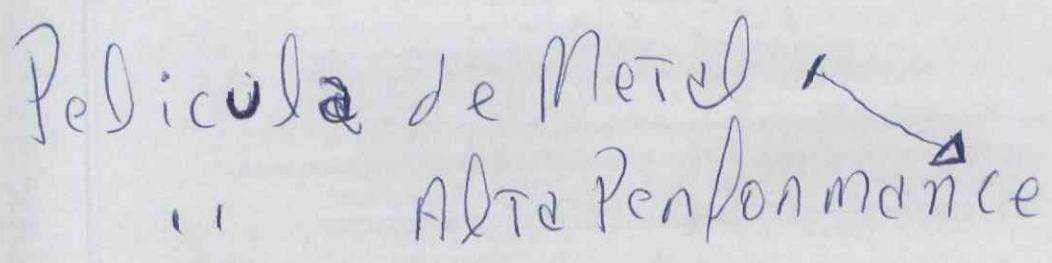 Pelicula de Metal
" Alta Performance